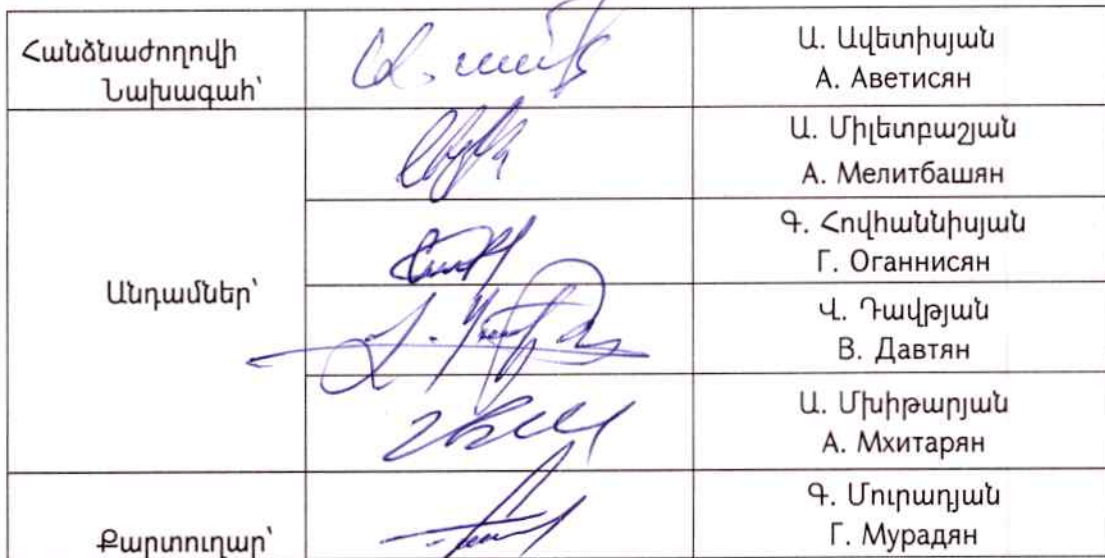 Հանձնաժողովի
Նախագահ՝
Ա. Ավետիսյան
А. Аветисян
Անդամներ՝
Ա. Միլետբաշյան
А. Мелитбашян
Գ. Հովհաննիսյան
Г. Оганнисян
Վ. Դավթյան
В. Давтян
Ա. Մխիթարյան
А. Мхитарян
Քարտուղար՝
Գ. Մուրադյան
Г. Мурадян